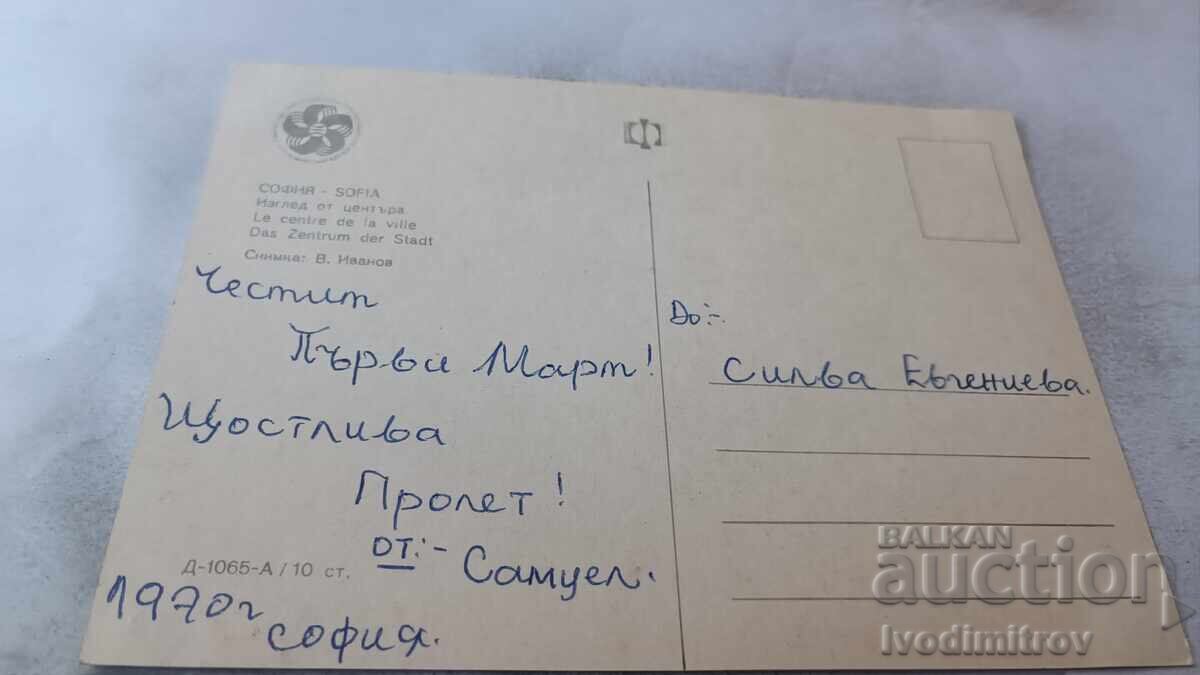 СОФИЯ - SOFIA
Изглед от центъра
Le centre de la ville
Das Zentrum der Stadt
Снимка: В. Иванов
Честит
Първи Март!
Щостлива
Пролет!
от:- Самуел.
Д-1065-А / 10 ст.
1970г
София.
До:-
Силва Евгениева.
BALKAN
auction
Ivodimitrov